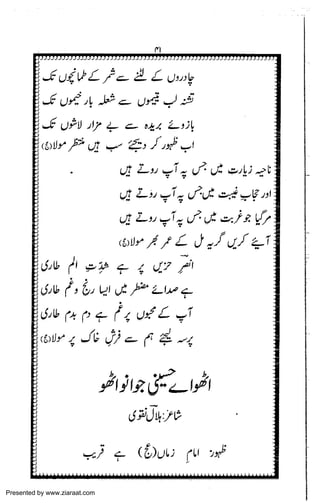 ۳۱
چادروں کے لٹنے سے شمر کے طمانچوں تک
تشنہ لب یتیموں سے شعلہ بار خیموں تک
بازوئے بریدہ سے بے مزار لاشوں تک
اب ظہور کر دیجئے سب ہیں منتظر مولا(ع)
ناحیہ زیارت میں جس پہ آپ روتے ہیں
اور حجاب غیبت میں جس پہ آپ روتے ہیں
مر گیا جو غربت میں جس پہ آپ روتے ہیں
آیئے کریں گریہ مل کے عمر بھر مولا(ع)
انصر حزیں پر ہے شدتِ الم طاری
ہے صدائے مضطر میں ایسا رنج و غم طاری
آپ کے محبوں پر غم ہے دم بدم طاری
پرسہ لیجئے ہم سے فرش خاک پر مولا(ع)
اٹھو اے حسینی جوانو اٹھو
شاعر: ہلال نقوی
ظہور امام زماں (عج) ہے قریب
Presented by www.ziaraat.com